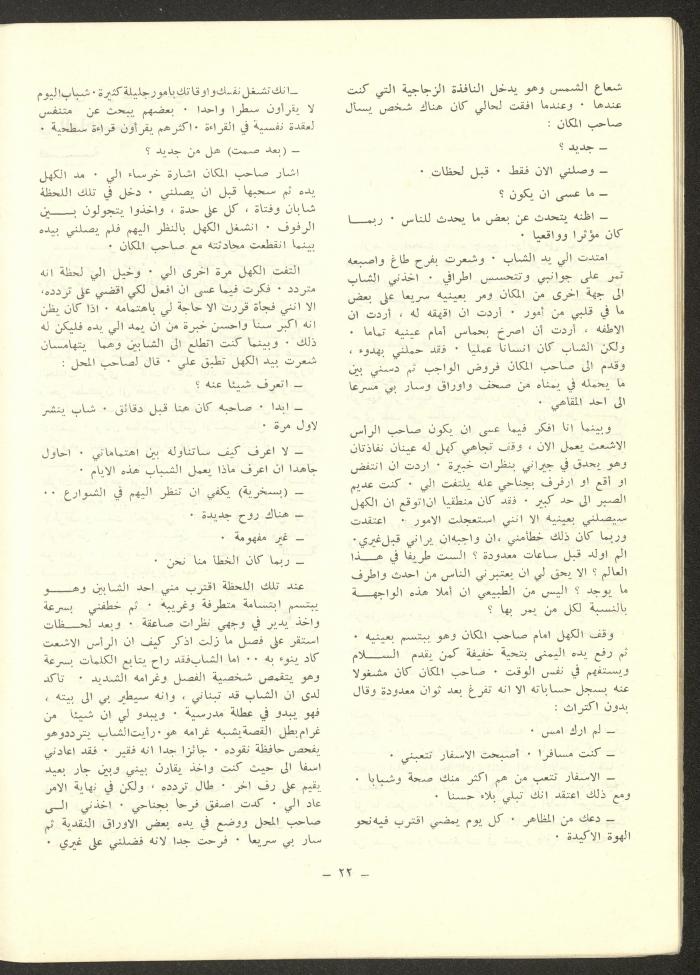 شعاع الشمس وهو يدخل النافذة الزجاجية التي كنت
عندها ٠ وعندما افقت لحالي كان هناك شخص يسأل
صاحب المكان :
ـ جديد ؟
ـ وصلني الان فقط ٠ قبل لحظات ٠
ـ ما عسى ان يكون ؟
ـ اظنه يتحدث عن بعض ما يحدث للناس ٠ ربمـــا
كان مؤثرا وواقعيا ٠
امتدت الي يد الشاب ٠ وشعرت بفرح طاغ واصبعه
تمر على جوانبي وتتحسس اطرافي ٠ اخذني الشاب
الى جهة اخرى من المكان ومر بعينيه سريعا على بعض
ما في قلبي من أمور ٠ أردت ان اقهقه له ، أردت ان
الاطفه ، أردت أن اصرخ بحماس أمام عينيه تماما ٠
ولكن الشاب كان انسانا عمليا ٠ فقد حملني بهدوء ،
وقدم الى صاحب المكان فروض الواجب ثم دسني بين
ما يحمله في يمناه من صحف واوراق وسار بي مسرعا
الى احد المقاهي ٠
وبينما انا افكر فيما عسى ان يكون صاحب الرأس
الاشعت يعمل الان ، وقف تجاهي كهل له عينان نفاذتان
وهو يحدق في جيراني بنظرات خبيرة ٠ اردت ان انتفض
او أقع او ارفرف بجناحي عله يلتفت الي ٠ كنت عديم
الصبر الى حد كبير ٠ فقد كان منطقيا ان اتوقع ان الكهل
سيصلني بعينيه الا انني استعجلت الامور ٠ اعتقدت
وربما كان ذلك خطأمني ،ان واجبه ان يراني قبل غيري٠
الم اولد قبل ساعات معدودة ؟ الست طريفا في هـــذا
العالم ؟ الا يحق لي ان يعتبرني الناس من احدث واطرف
ما يوجد ؟ اليس من الطبيعي ان أملا هذه الواجهـــة
بالنسبة لكل من يمر بها ؟
وقف الكهل امام صاحب المكان وهو يبتسم بعينيه ٠
ثم رفع يده اليمنى بتحية خفيفة كمن يقدم الســـلام
ويستفهم في نفس الوقت ٠ صاحب المكان كان مشغولا
عنه يسجل حساباته الا انه تفرغ بعد ثوان معدودة وقال
بدون اكتراث :
ـ لم ارك امس ٠
ـ كنت مسافرا ٠ أصبحت الاسفار تتعبني ٠
ـ الاسفار تتعب من هم اكثر منك صحة وشبابا ٠
ومع ذلك اعتقد انك تبلي بلاء حسنا ٠
ـ دعك من المظاهر ٠ كل يوم يمضي اقترب فيه نحو
الهوة الاكيدة ٠
ـ انك تشغل نفسك واوقاتك بامور جليلة كثيرة ٠ شباب اليوم
لا يقرأون سطرا واحدا ٠ بعضهم يبحث عن متنفس
لعقدة نفسية في القراءة ٠ اكثرهم يقرأون قراءة سطحية ٠
ـ (بعد صمت) هل من جديد ؟
اشار صاحب المكان اشارة خرساء الي ٠ مد الكهل
يده ثم سحبها قبل ان يصلني ٠ دخل في تلك اللحظة
شابان وفتاة ، كل على حدة ، واخذوا يتجولون بـــين
الرفوف ٠ انشغل الكهل بالنظر اليهم فلم يصلني بيده
بينما انقطعت محادثته مع صاحب المكان ٠
التفت الكهل مرة اخرى الي ٠ وخيل الي لحظة انه
متردد ٠ فكرت فيما عسى ان افعل لكي اقضي على تردده،
الا انني فجأة قررت الا حاجة لي باهتمامه ٠ اذا كان يظن
انه اكبر سنا واحسن خبرة من ان يمد الي يده فليكن له
ذلك ٠ وبينما كنت اتطلع الى الشابين وهما يتهامسان
شعرت بيد الكهل تطبق علي ٠ قال لصاحب المحل :
ـ اتعرف شيئا عنه ؟
ـ ابدا ٠ صاحبه كان هنا قبل دقائق ٠ شاب ينشر
لاول مرة ٠
ـ لا اعرف كيف ساتناوله بين اهتماماتي ٠ احاول
جاهدا ان اعرف ماذا يعمل الشباب هذه الايام ٠
ـ (بسخرية) يكفي ان تنظر اليهم في الشوارع ٠٠
ـ هناك روح جديدة ٠
ـ غير مفهومة ٠
ـ ربما كان الخطا منا نحن ٠
عند تلك اللحظة اقترب مني احد الشابين وهـــو
يبتسم ابتسامة متطرفة وغريبه ٠ ثم خطفني بسرعة
واخذ يدير في وجهي نظرات صاعقة ٠ وبعد لحـــظات
استقر على فصل ما زلت اذكر كيف ان الرأس الاشعت
كاد ينوء به ٠٠ اما الشاب فقد راح يتابع الكلمات بسرعة
وهو يتقمص شخصية الفصل وغرامه الشديد ٠ تاكد
لدى ان الشاب قد تبناني ، وانه سيطير بي الى بيته ،
فهو يبدو في عطلة مدرسية ٠ ويبدو لي ان شيئا من
غرام بطل القصة يشبه غرامه هو ٠ رأيت الشاب يتردد وهو
يفحص حافظة نقوده ٠ جائزا جدا انه فقير ٠ فقد اعادني
اسفا الى حيث كنت واخذ يقارن بيني وبين جار بعيد
يقيم على رف اخر ٠ طال تردده ، ولكن في نهاية الامر
عاد الي ٠ كدت اصفق فرحا بجناحي ٠ اخذني الـــى
صاحب المحل ووضع في يده بعض الاوراق النقدية ثم
سار بي سريعا ٠ فرحت جدا لانه فضلني على غيري ٠
ـ ٢٢ ـ